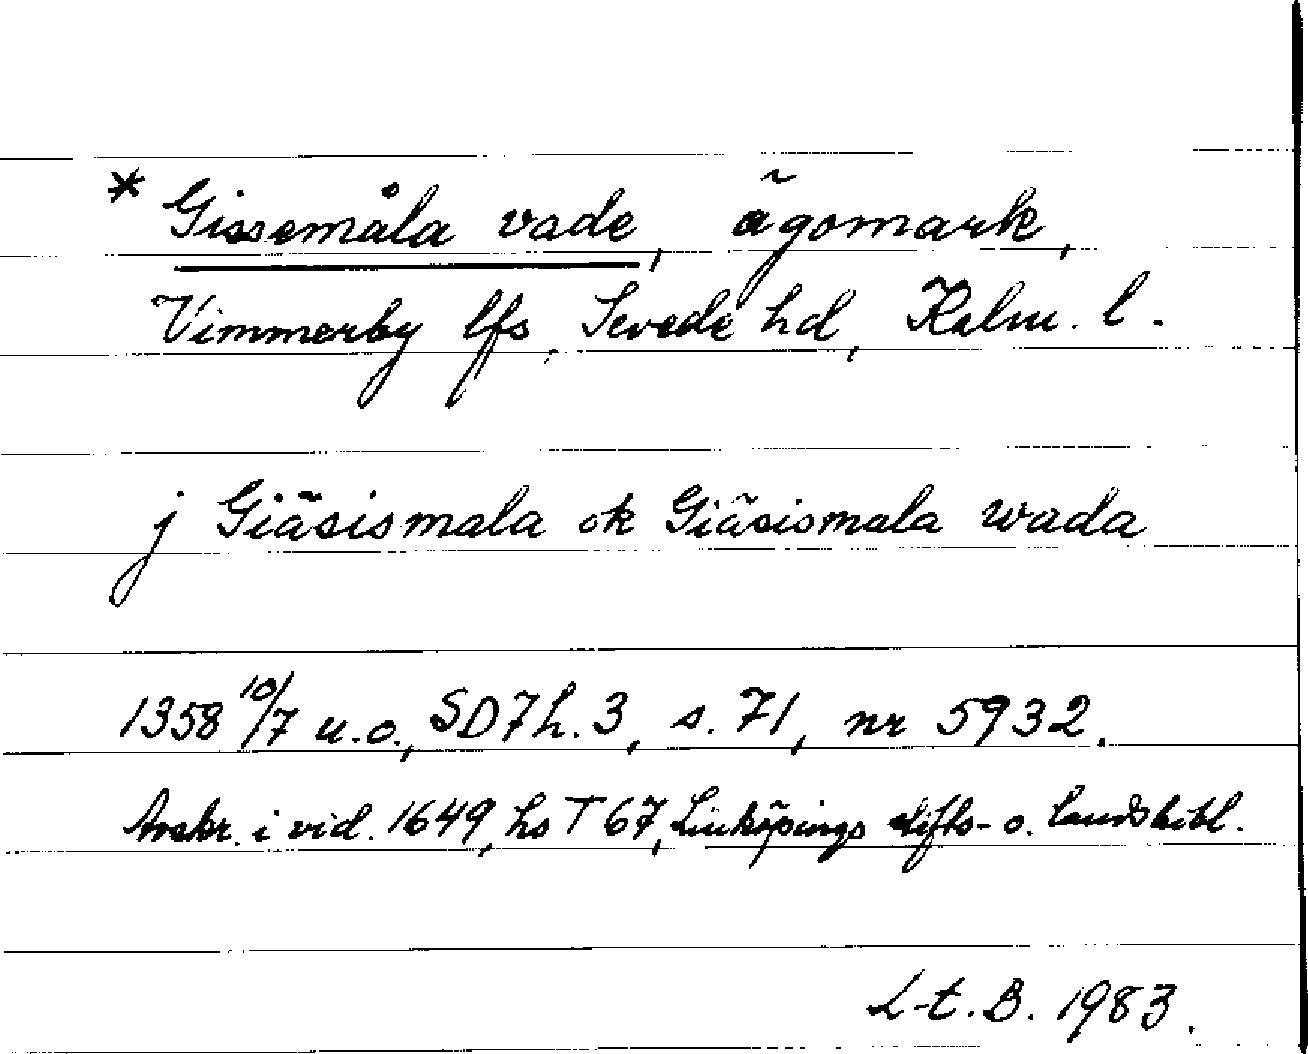 * Gissemåla vade, ägomark,
Vimmerby lfs, Sevede hd, Kalm. l.
j Giäsismala ok Giäsismala wada
1358 10/7 u.o., SD7h.3, s. 71, nr 5932.
Avskr. i vid. 1649, hs T 67, Linköpings stifts- o. landsbibl.
L-t. B. 1983.